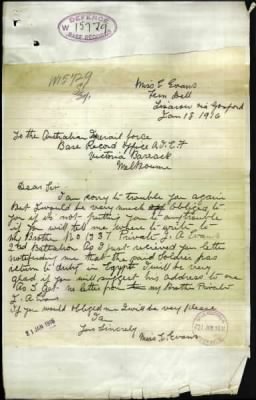 DEFENCE
W 15729
BASE RECORDS
Miss E Evans
Fern Dell
Lisarow via Gosford
Jan 18 1916
To the Australian Imperail force
Base Record Office A.I.F
Victoria Barrack
Melbourne
Dear Sir
I am sorry to trouble you again
But I would be very much obliged to
you if its not putting you to any trouble
if you will tell me where to write to
my Brother No 1937 Private L. A. Evans
2nd Battalion As I just recieved you letter
notifying me that the said Soldier has
return to duty in Egypt I will be very
glad if you will his address to me
As I Got no letter from my Brother Private
L. A. Evans
If you would obliged me I will be very please
I am
Yours Sincerely
Miss E. Evans
21 JAN 1916